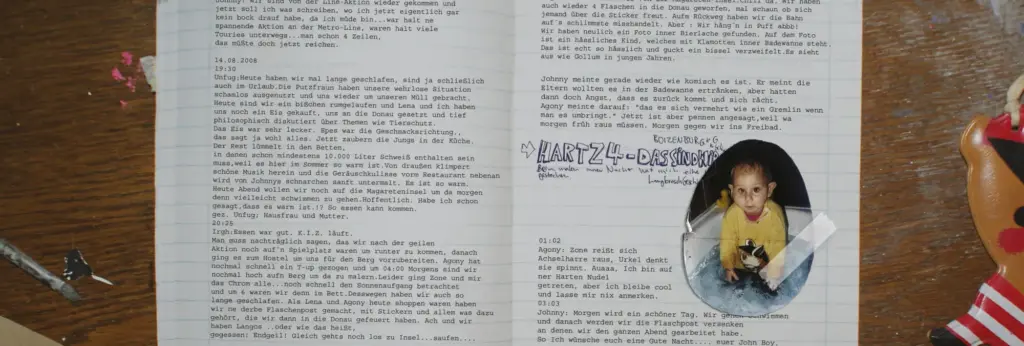 Johnny: Wir sind von der Line-Aktion wieder gekommen und
jetzt soll ich was schreiben, wo ich jetzt eigentlich gar
kein bock drauf habe, da ich müde bin...war halt ne
spannende Aktion an der Metro-Line, waren halt viele
Touries unterwegs...man schon 4 Zeilen,
das müßte doch jetzt reichen.
14.08.2008
19:30
Unfug:Heute haben wir mal lange geschlafen, sind ja schließlich
auch im Urlaub.Die Putzfraun haben unsere wehrlose Situation
schamlos ausgenutzt und uns wieder um unseren Müll gebracht.
Heute sind wir ein bißchen rumgelaufen und Lena und ich haben
uns noch ein Eis gekauft, uns an die Donau gesetzt und tief
philosophisch diskutiert über Themen wie Tierschutz.
Das Eis war sehr lecker. Epes war die Geschmacksrichtung.,
das sagt ja wohl alles. Jetzt zaubern die Jungs in der Küche.
Der Rest lümmelt in den Betten,
in denen schon mindestens 10.000 Liter Schweiß enthalten sein
muss,weil es hier im Sommer so warm ist.Von draußen klimpert
schöne Musik herein und die Geräuschkulisse vom Restaurant nebenan
wird von Johnnys schnarchen sanft untermalt. Es ist so warm.
Heute Abend wollen wir noch auf die Magareteninsel um da morgen
denn vielleicht schwimmen zu gehen.Hoffentlich. Habe ich schon
gesagt,dass es warm ist.!? So essen kann kommen.
gez. Unfug; Hausfrau und Mutter.
20:25
Irgh:Essen war gut. K.I.Z. läuft.
Man muss nachträglich sagen, das wir nach der geilen
Aktion noch auf'n Spielplatz waren um runter zu kommen, danach
ging es zum Hostel um uns für den Berg vorzubereiten. Agony hat
nochmal schnell ein T-up gezogen und um 04:00 Morgens sind wir
nochmal hoch aufn Berg um da zu malern.Leider ging Zone und mir
das Chrom alle...noch schnell den Sonnenaufgang betrachtet
und um 6 waren wir denn im Bett.Desswegen haben wir auch so
lange geschlafen. Als Lena und Agony heute shoppen waren haben
wir ne derbe Flaschenpost gemacht, mit Stickern und allem was dazu
gehört, die wir dann in die Donau gefeuert haben. Ach und wir
haben Langos ..oder wie das heißt,
gegessen: Endgeil! Gleich gehts noch los zu Insel...saufen....
auch wieder 4 Flaschen in die Donau geworfen, mal schaun ob sich
jemand über die Sticker freut. Aufm Rückweg haben wir die Bahn
auf's schlimmste misshandelt. Aber : Wir häng'n in Puff abhh!
Wir haben neulich ein Foto inner Bierlache gefunden. Auf dem Foto
ist ein hässliches Kind, welches mit Klamotten inner Badewanne steht.
Das ist echt so hässlich und guckt ein bissel verzweifelt.Es sieht
aus wie Gollum in jungen Jahren.
Johnny meinte gerade wieder wie komisch es ist. Er meint die
Eltern wollten es in der Badewanne ertränken, aber hatten
dann doch Angst, dass es zurück kommt und sich rächt.
Agony meinte darauf: "das es sich vermehrt wie ein Gremlin wenn
man es umbringt." Jetzt ist aber pennen angesagt,weil wa
morgen früh raus müssen. Morgen gegen wir ins Freibad.
HARTZ 4 - DAS SIND
01:02
Agony: Zone reißt sich
Achselharre raus, Urkel denkt
sie spinnt. Auaaa. Ich bin auf
ner harten Nudel
getreten, aber ich bleibe cool
und lasse mir nix anmerken.
03:03
Johnny: Morgen wird ein schöner Tag. Wir gehen schwimmen
und danach werden wir die Flaschpost versenken
an denen wir den ganzen Abend gearbeitet habe.
So ich wünsche euch eine Gute Nacht.... euer John Boy.